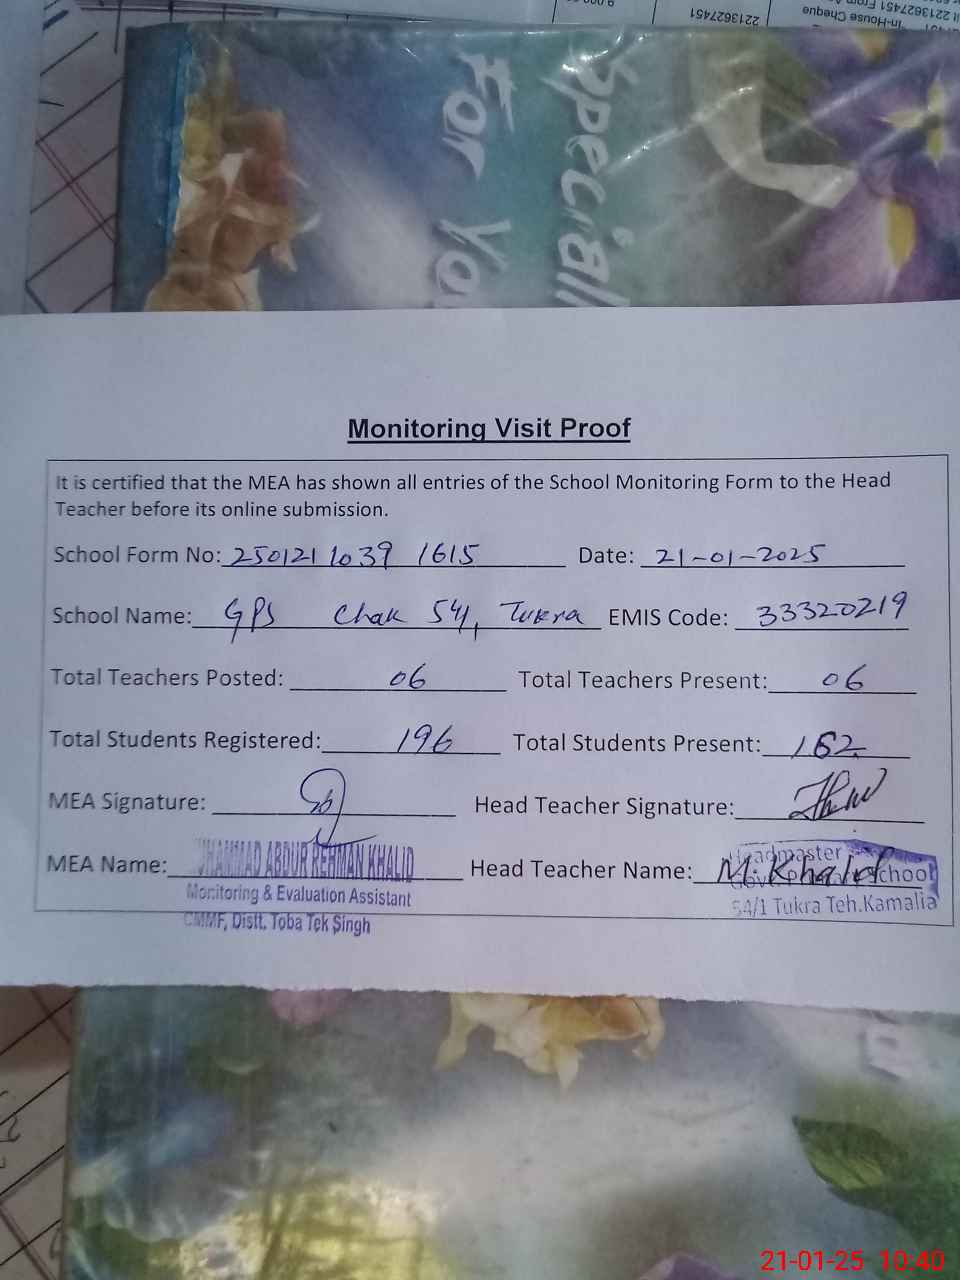 2213627451
In-House Cheque
2213627451 From
Special
For Yo
Monitoring Visit Proof
It is certified that the MEA has shown all entries of the School Monitoring Form to the Head
Teacher before its online submission.
School Form No: 250121 1039 1615 Date: 21-01-2025
School Name: GPS Chak 54/1 Tukra EMIS Code: 33320219
Total Teachers Posted: 06 Total Teachers Present: 06
Total Students Registered: 196 Total Students Present: 162
MEA Signature: Head Teacher Signature:
MEA Name: UHAMMAD ABDUR REHMAN KHALID Head Teacher Name: M. Khalid
Headmaster
School
Monitoring & Evaluation Assistant
54/1 Tukra Teh.Kamalia
CMMF, Distt. Toba Tek Singh
21-01-25 10:40